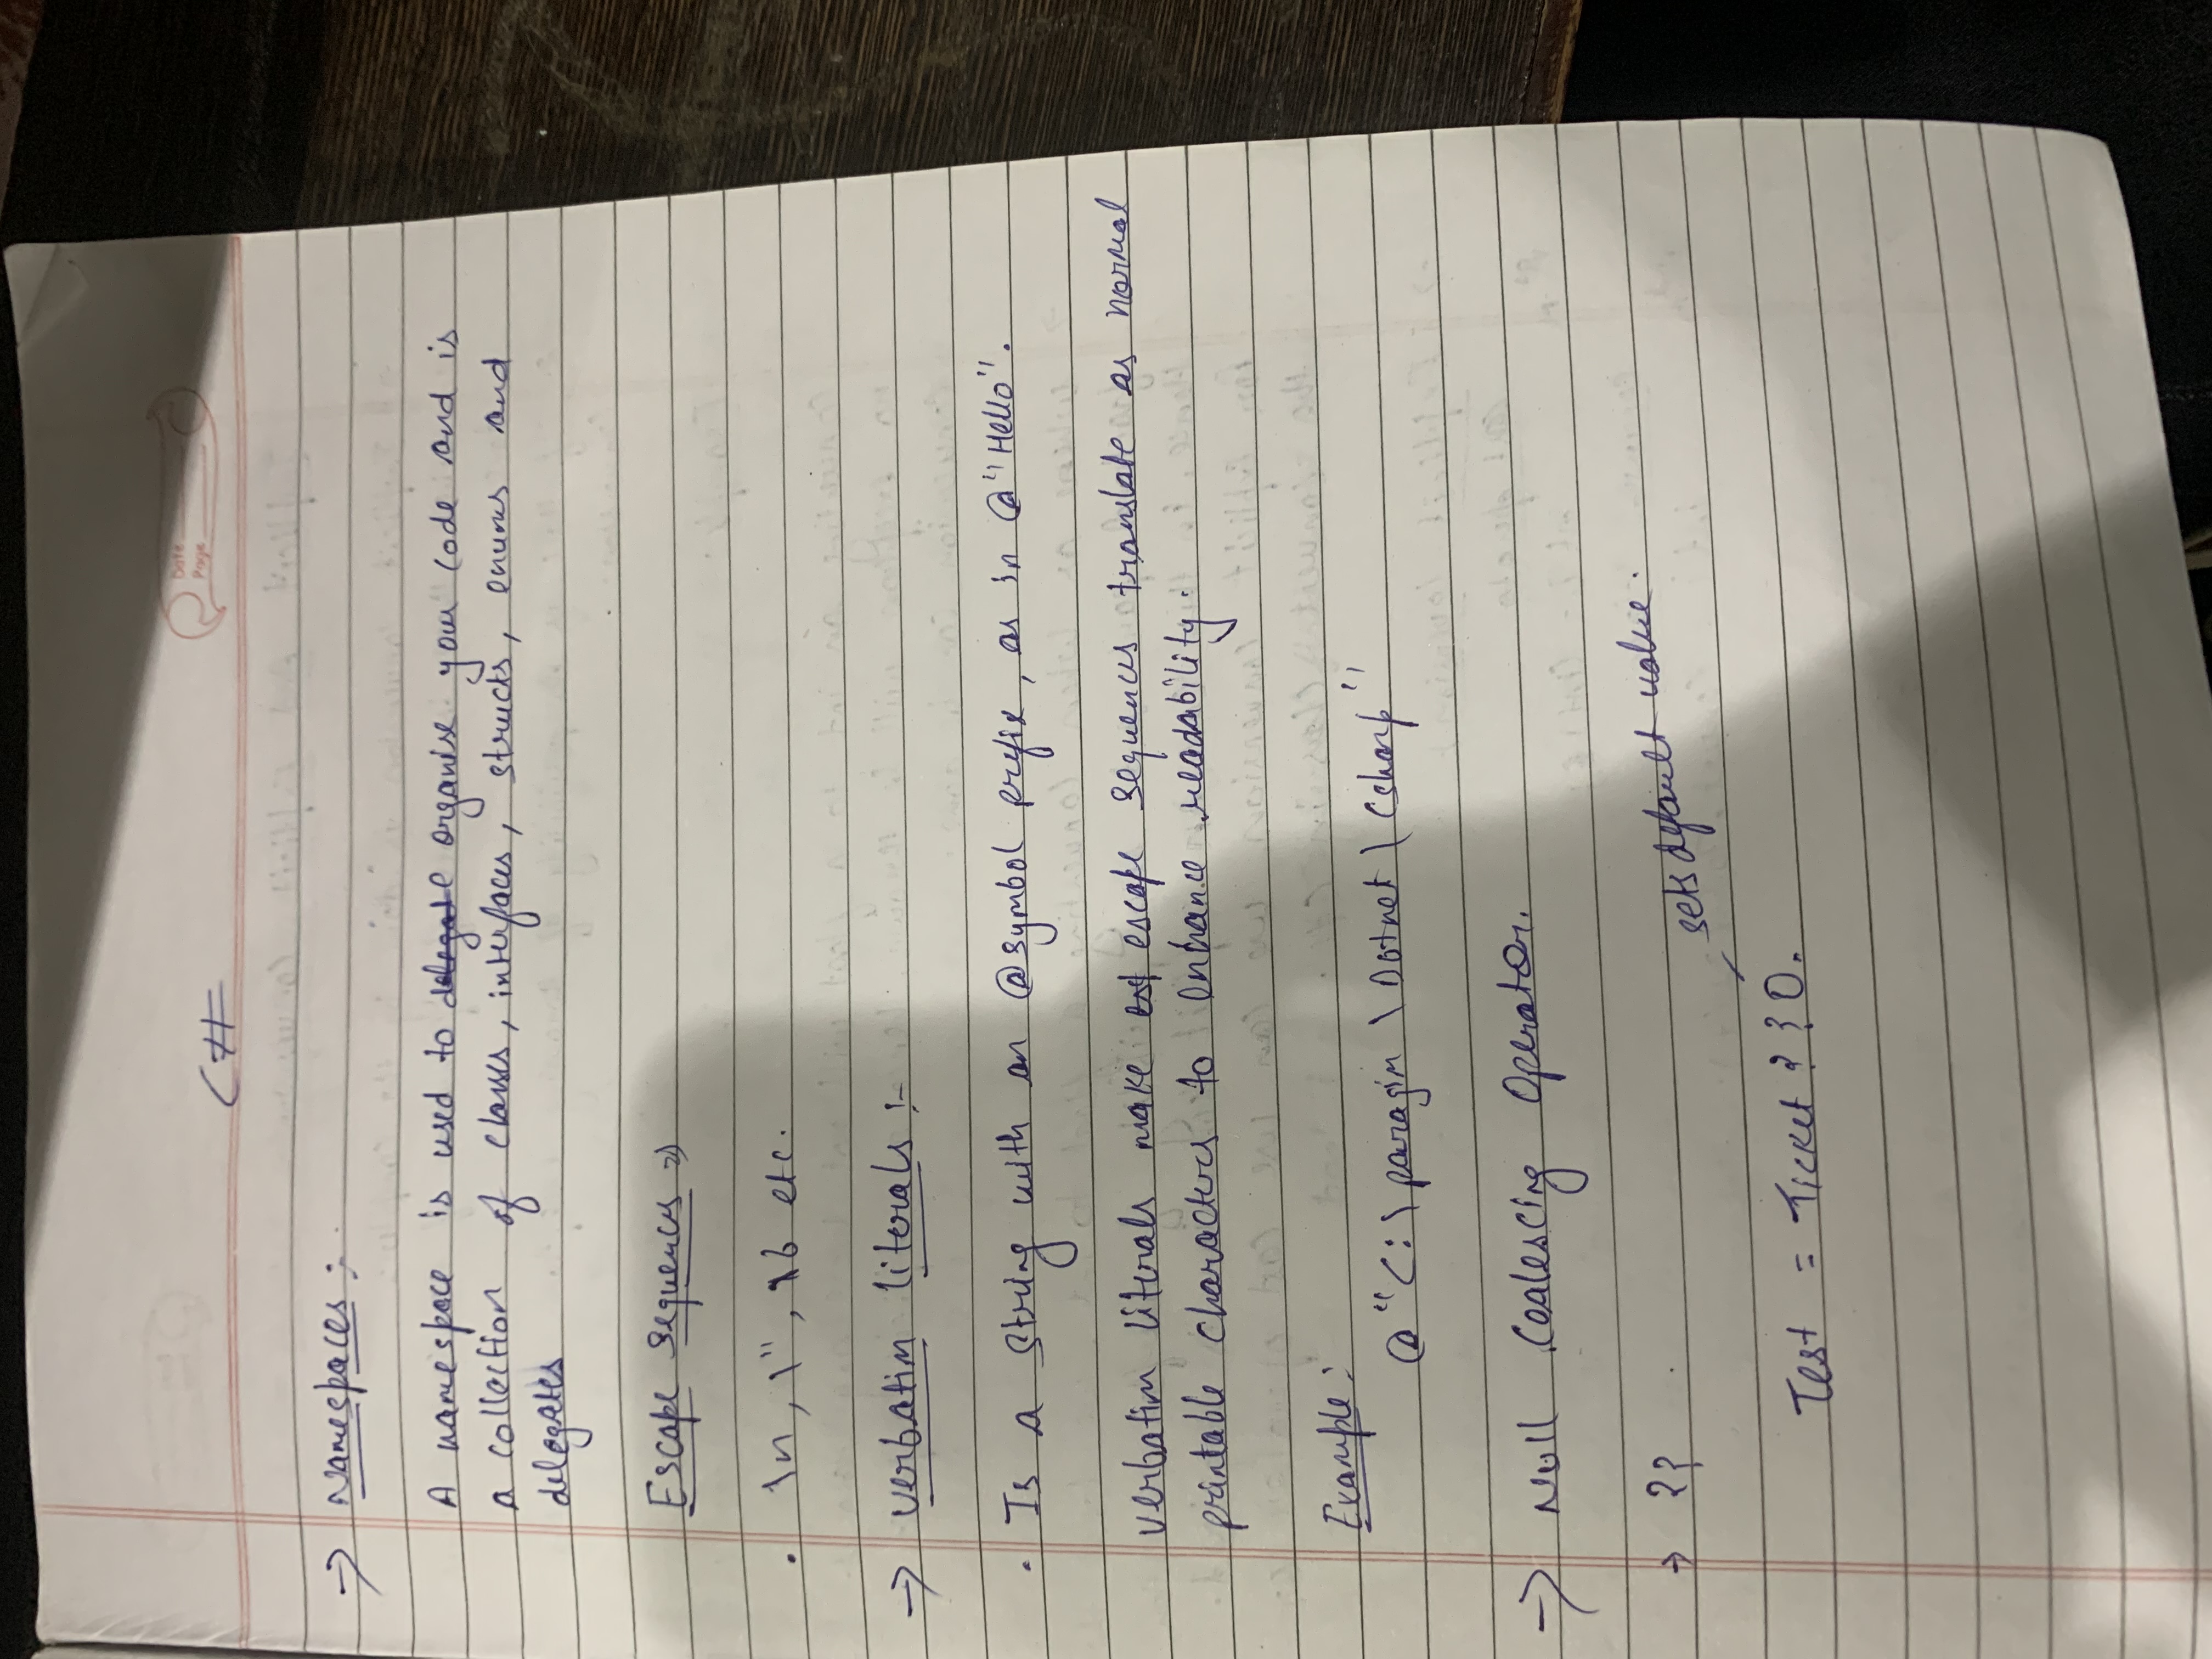 Date
Page
C#
→ Namespaces :-
A namespace is used to delegate organise your code and is
a collection of classes, interfaces, structs, enums and
delegates
Escape sequences ⇒
. \n, \", \b etc.
→ verbatim literals :-
. Is a string with an @symbol prefix, as in @"Hello".
verbatim literals make escape sequences translate as normal
printable characters to enhance readability.
Example :
@"C:\paragim\Dotnet\Csharp"
→ Null Coalescing Operator.
→ ??
sets default value.
Test = Ticket ?? 0.